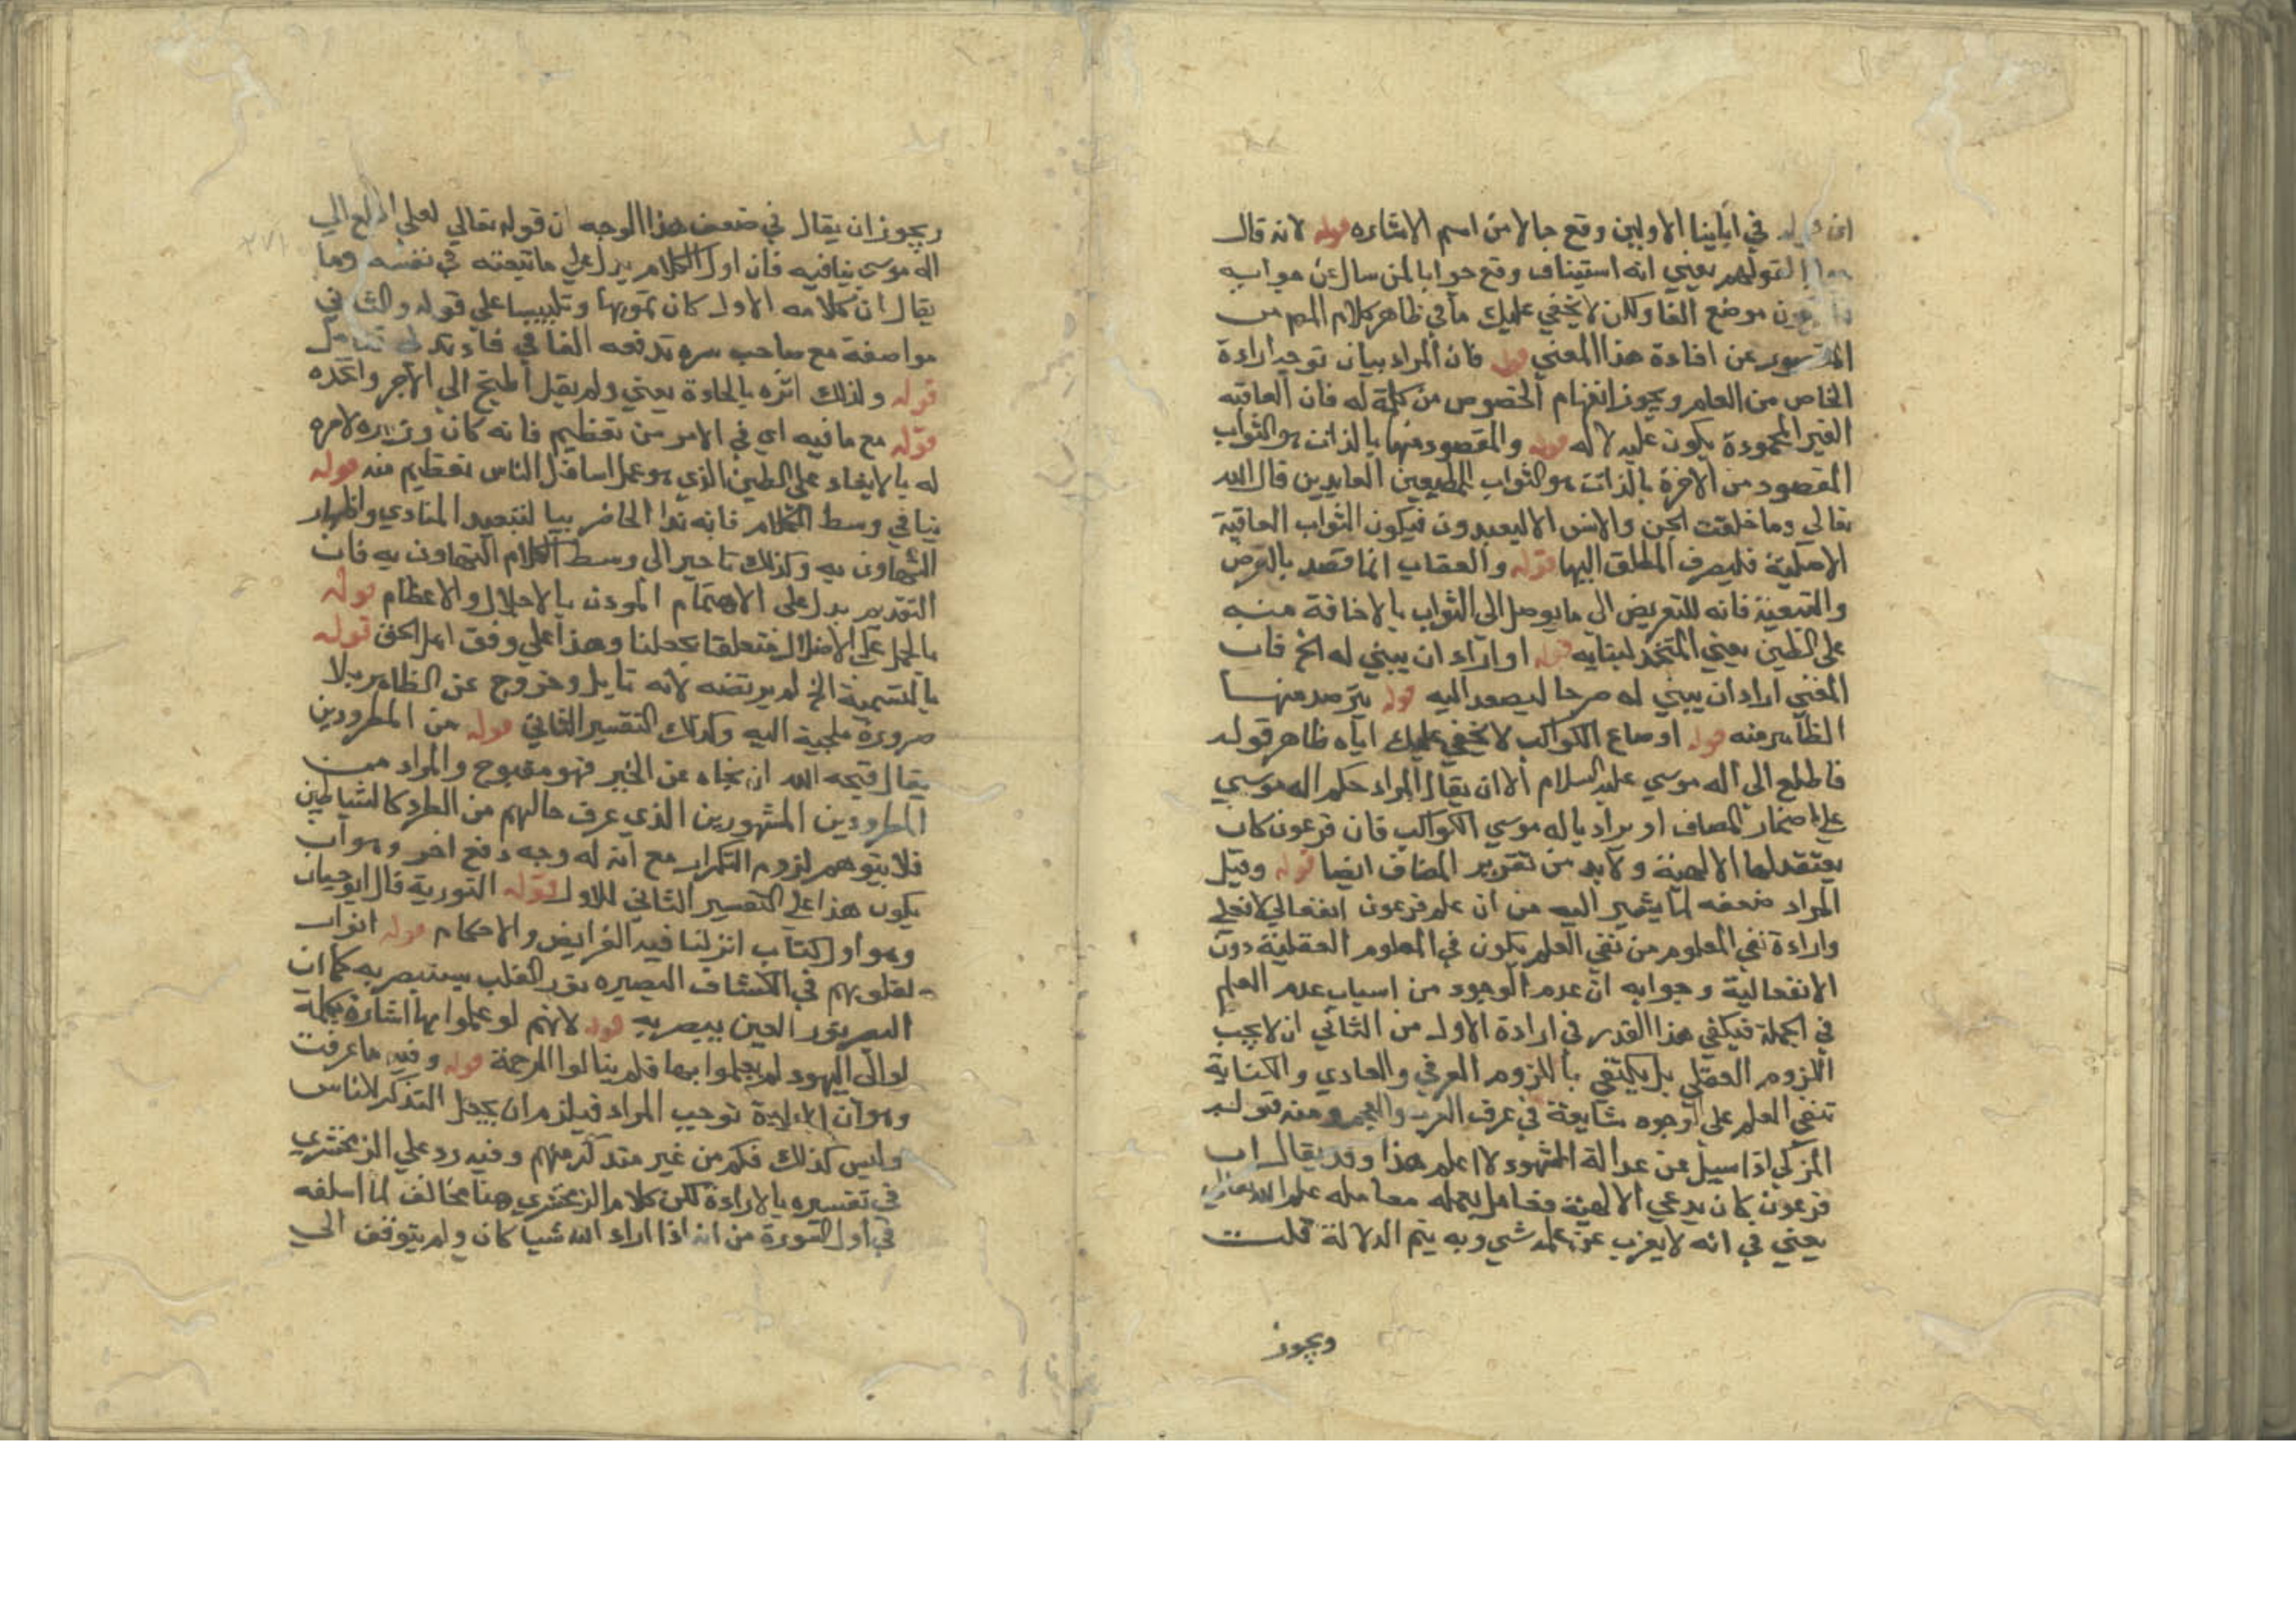 في آبائنا الاولين وقع حالا من اسم الاشاره قوله لانه قال
لقولهم يعني انه استيناف وقع جوابا لمن سال عن جوابه
موضع الفا ولكن لا يخفي عليك ما في ظاهر كلام المص من
عن افادة هذا المعني قوله فان المراد بيان توجه ارادة
الخاص من العام ويجوز انفهام الخصوص من كلمة له فان العاقبه
الغير المحمودة يكون عليه لا له قوله والمقصود منها بالذات هو الثواب
المقصود من الاخرة بالذات هو الثواب للمطيعين العابدين قال الله
تعالي وما خلقت الجن والانس الا ليعبدون فيكون الثواب العاقبة
الاصلية فليصرف المطلق اليها قوله والعقاب انما قصد بالعرض
والتبعية فانه للتعريض الي ما يوصل الي الثواب بالاضافة منبه
علي الطين يعني المتخذ لبنايه قوله او اراد ان يبني له الخ فان
المغني اراد ان يبني له صرحا ليصعد اليه قوله يترصد منها
الظاهر منه قوله اوضاع الكواكب لا يخفي عليك اباه ظاهر قوله
فاطلع الي اله موسي عليه السلام الا ان يقال المراد حكم اله موسي
علي اضمار المضاف او يراد باله موسي الكواكب فان فرعون كان
يعتقد لها الالهية ولا بد من تقرير المضاف ايضا قوله وقيل
المراد ضعفه لما يشير اليه من ان علم فرعون انفعالي لا فعلي
وارادة نفي المعلوم من نفي العلم يكون في العلوم الفعلية دون
الانفعالية وجوابه ان عدم الوجود من اسباب عدم العلم
في الجملة فيكفي هذا القدر في ارادة الاول من الثاني ان لا يجب
اللزوم العقلي بل يكتفي باللزوم العرفي والعادي والكناية
تنفي العلم علي الوجوه شايعة في عرف العرب والعجم ومنه قول
المزكي اذا سيل عن عدالة الشهود لا اعلم هذا وقد يقال ان
فرعون كان يدعي الالهية فعامل بعلمه معاملة علم الله تعالي
يعني في انه لا يعزب عن علمه شي وبه يتم الدلالة قلت
ويجوز
ويجوز ان يقال في ضعف هذا الوجه ان قوله تعالي لعلي اطلع الي
اله موسي ينافيه فان اول الكلام يدل علي ما تيقنه في نفسه وما
يقال ان كلامه الاول كان تمويها وتلبيسا علي قوله والثاني
مواضعة مع صاحب سره تدفعه الفا في فاوقد لي
قوله ولذلك اثره بالعادة يعني ولم يقل اطبخ الي الاجر واتخذه
قوله مع ما فيه اي في الامر من تعظيم فانه كان وزيره لامره
له بالايقاد علي الطين الذي هو عمل اسافل الناس تعظيم منه قوله
بيا في وسط الكلام فانه ندا الحاضر بيا لتبعيد المنادي واظهار
التهاون به وكذلك تاخير الي وسط الكلام التهاون به فان
التقديم يدل علي الاهتمام الموذن بالاجلال والاعظام قوله
بالحمل علي الاضلال فتعلقا بجعلنا وهذا علي وفق اهل الحق قوله
بالتسمية الخ لم يرتضه لانه تاويل وخروج عن الظاهر بلا
ضرورة ملجية اليه وكذلك التفسير الثاني قوله من المطرودين
يقال قبحه الله اي نحاه عن الخير فهو مقبوح والمراد من
المطرودين المشهورين الذي عرف حالهم من الطرد كالشياطين
فلا يتوهم لزوم التكرار مع ان له وجه دفع اخر وهو ان
يكون هذا علي التفسير الثاني للاول قوله التورية قال ابو حيان
وهو اول كتاب انزلنا فيه الفرايض والاحكام قوله انوارا
لقلوبهم في الكشاف البصيره نور القلب يستبصر به كما ان
البصر نور العين يبصر به قوله لانهم لو عملوا بها اشارة بكلمة
لو الي اليهود لم يعملوا بها فلم ينالوا الرحمة قوله وفيه ما عرفت
وهو ان الارادة توجب المراد فيلزم ان يحصل التذكر للناس
وليس كذلك فكم من غير متذكر منهم وفيه رد علي الزمخشري
في تفسيره بالارادة لكن كلام الزمخشري هنا مخالف لما اسلفه
في اول السورة من انه اذا اراد الله شيا كان ولم يتوقف الي